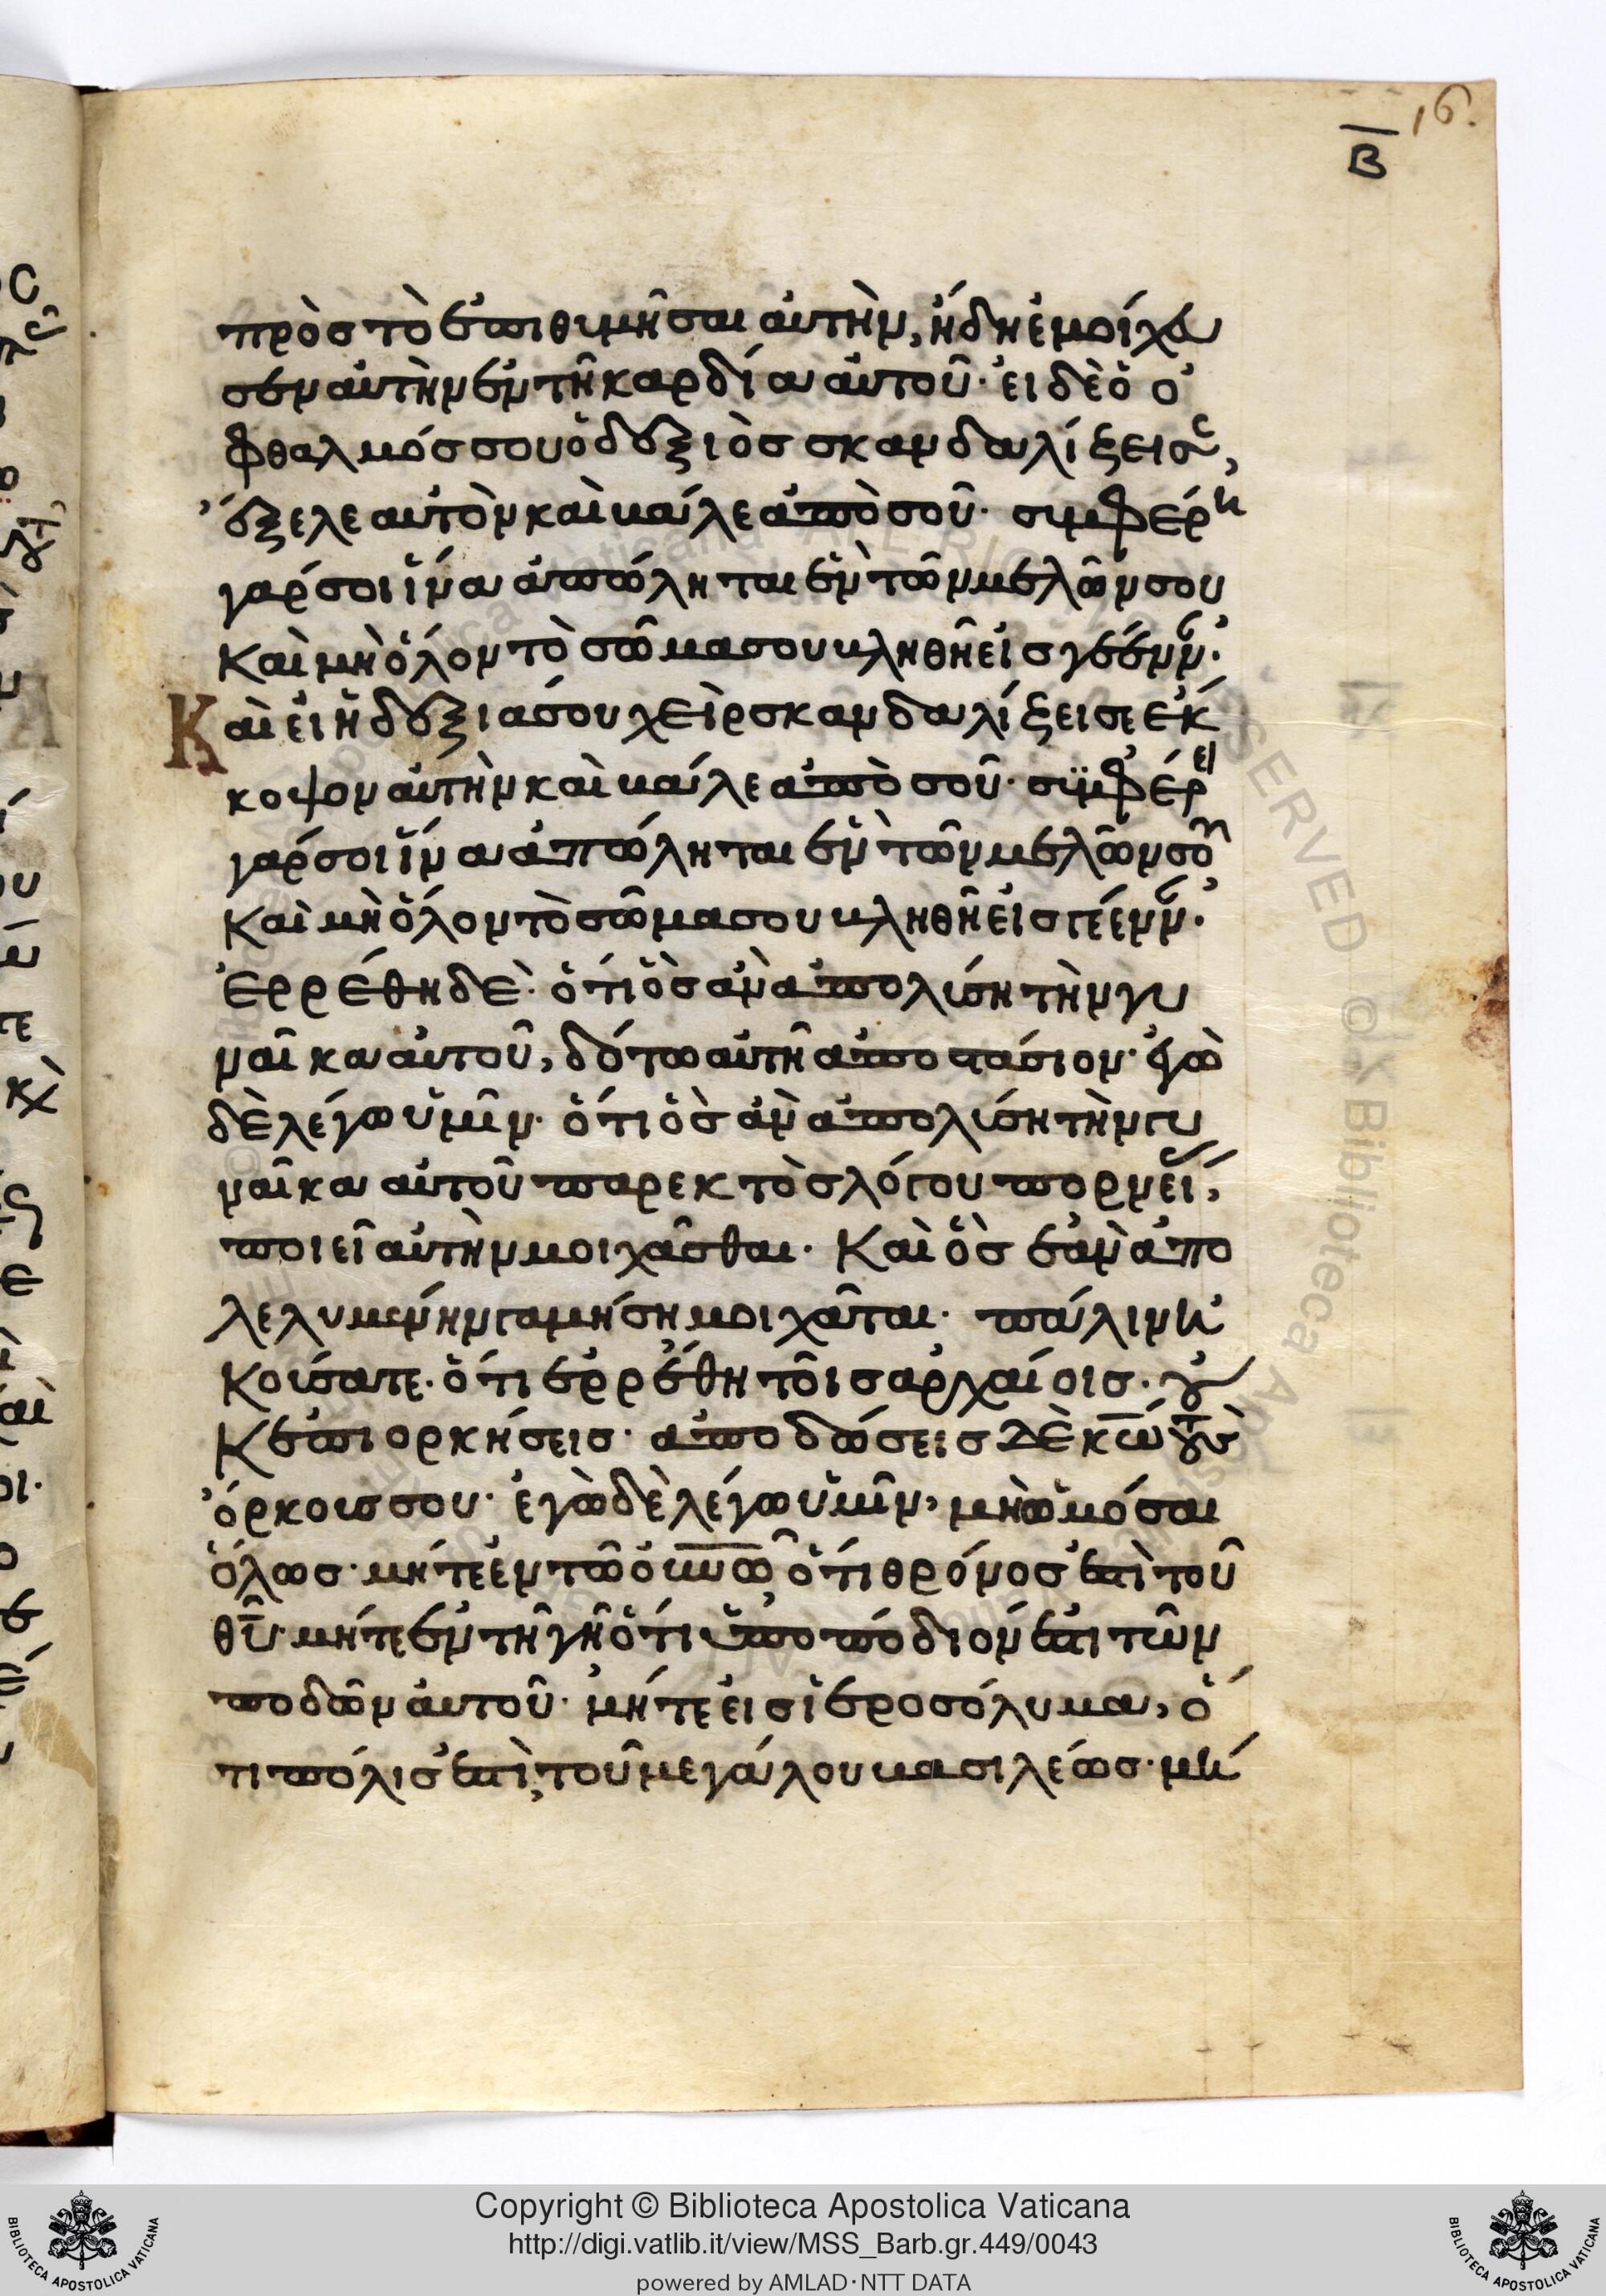 16.
Β
πρὸς τὸ ἐπιθυμῆσαι αὐτὴν, ἤδη ἐμοίχευ
σεν αὐτὴν ἐν τῆ καρδία αὐτοῦ· εἰ δὲ ὁ ὀ
φθαλμός σου ὁ δεξιὸς σκανδαλίζει σε,
ἔξελε αὐτὸν καὶ βάλε ἀπὸ σοῦ· συμφέρει
γάρ σοι ἵνα ἀπόληται ἓν τῶν μελῶν σου
καὶ μὴ ὅλον τὸ σῶμα σου βληθῆ εἰς γέενν·
Καὶ εἰ ἡ δεξιά σου χεὶρ σκανδαλίζει σε ἔκ
κοψον αὐτὴν καὶ βάλε ἀπὸ σοῦ· συμφέρει
γάρ σοι ἵνα ἀπώληται ἓν τῶν μελῶν σου
καὶ μὴ ὅλον τὸ σῶμα σου βληθῆ εἰς γέενν·
Ἐρρέθη δὲ· ὅτι ὃς ἂν ἀπολύση τὴν γυ
ναῖκα αὐτοῦ, δότω αὐτῆ ἀποστάσιον· ἐγὼ
δὲ λέγω ὑμῖν· ὅτι ὃς ἂν ἀπολύση τὴν γυ
ναῖκα αὐτοῦ παρεκτὸς λόγου πορνεί,
ποιεῖ αὐτὴν μοιχᾶσθαι· Καὶ ὃς ἐὰν ἀπο
λελυμένην γαμήση μοιχᾶται· πάλιν ἠ
κούσατε· ὅτι ἐρρέθη τοῖς ἀρχαίοις· οὐ
κ ἐπιορκήσεις· ἀποδώσεις δὲ κω τοὺς
ὅρκους σου· ἐγὼ δὲ λέγω ὑμῖν, μὴ ὠμόσαι
ὅλως· μήτε ἐν τῶ οὐνω ὅτι θρόνος ἐστὶ τοῦ
θυ· μήτε ἐν τῆ γῆ ὅτι ὑποπόδιόν ἐστι τῶν
ποδῶν αὐτοῦ· μήτε εἰς ἱεροσόλυμα, ὅ
τι πόλις ἐστὶ τοῦ μεγάλου βασιλέως· μή
Copyright © Biblioteca Apostolica Vaticana
http://digi.vatlib.it/view/MSS_Barb.gr.449/0043
powered by AMLAD·NTT DATA